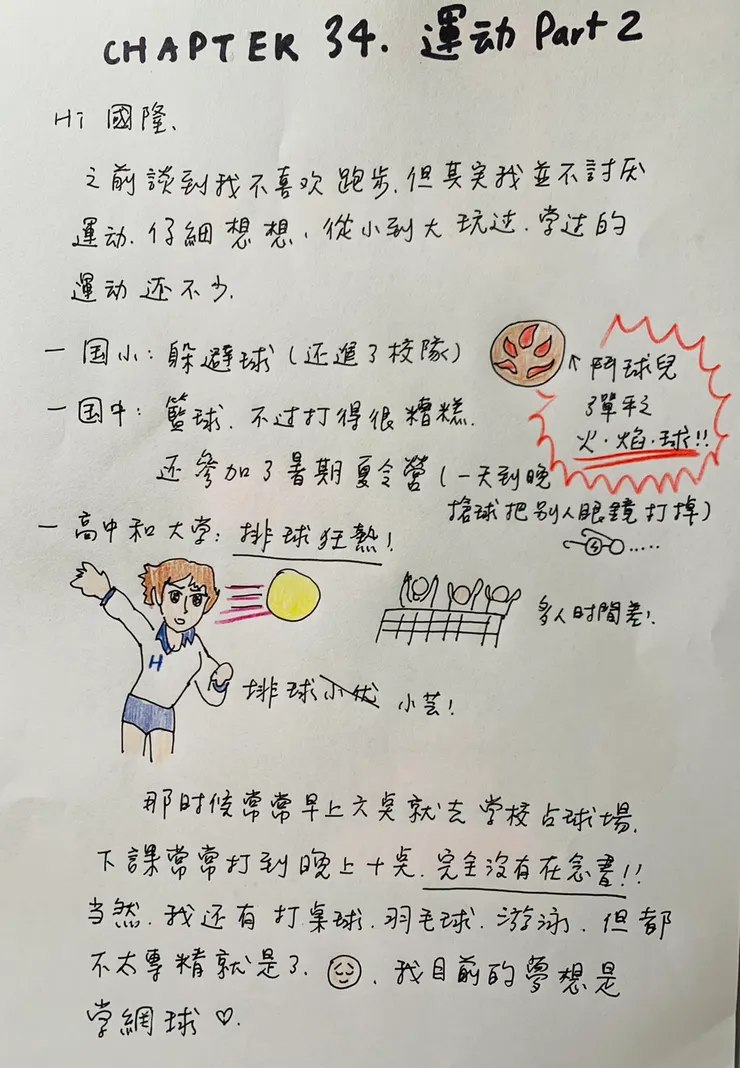 CHAPTER 34. 運动 Part 2
Hi 國隆、
之前談到我不喜欢跑步.但其实我並不討厌
運动.仔細想想、從小到大玩过.学过的
運动还不少.
一国小:躲避球(还進了校隊)
↑鬥球兒
彈平之
火·焰·球!!
一国中:籃球.不过打得很糟糕.
还参加了暑期夏令營(一天到晚
搶球把別人眼鏡打掉)
一高中和大学:排球狂熱!
多人时間差!
H
排球小优 小芸!
那时候常常早上六奌就去学校占球場.
下課常常打到晚上十奌.完全沒有在念書!!
当然.我还有打桌球.羽毛球.游泳.但都
不太專精就是了.我目前的夢想是
学網球♡.